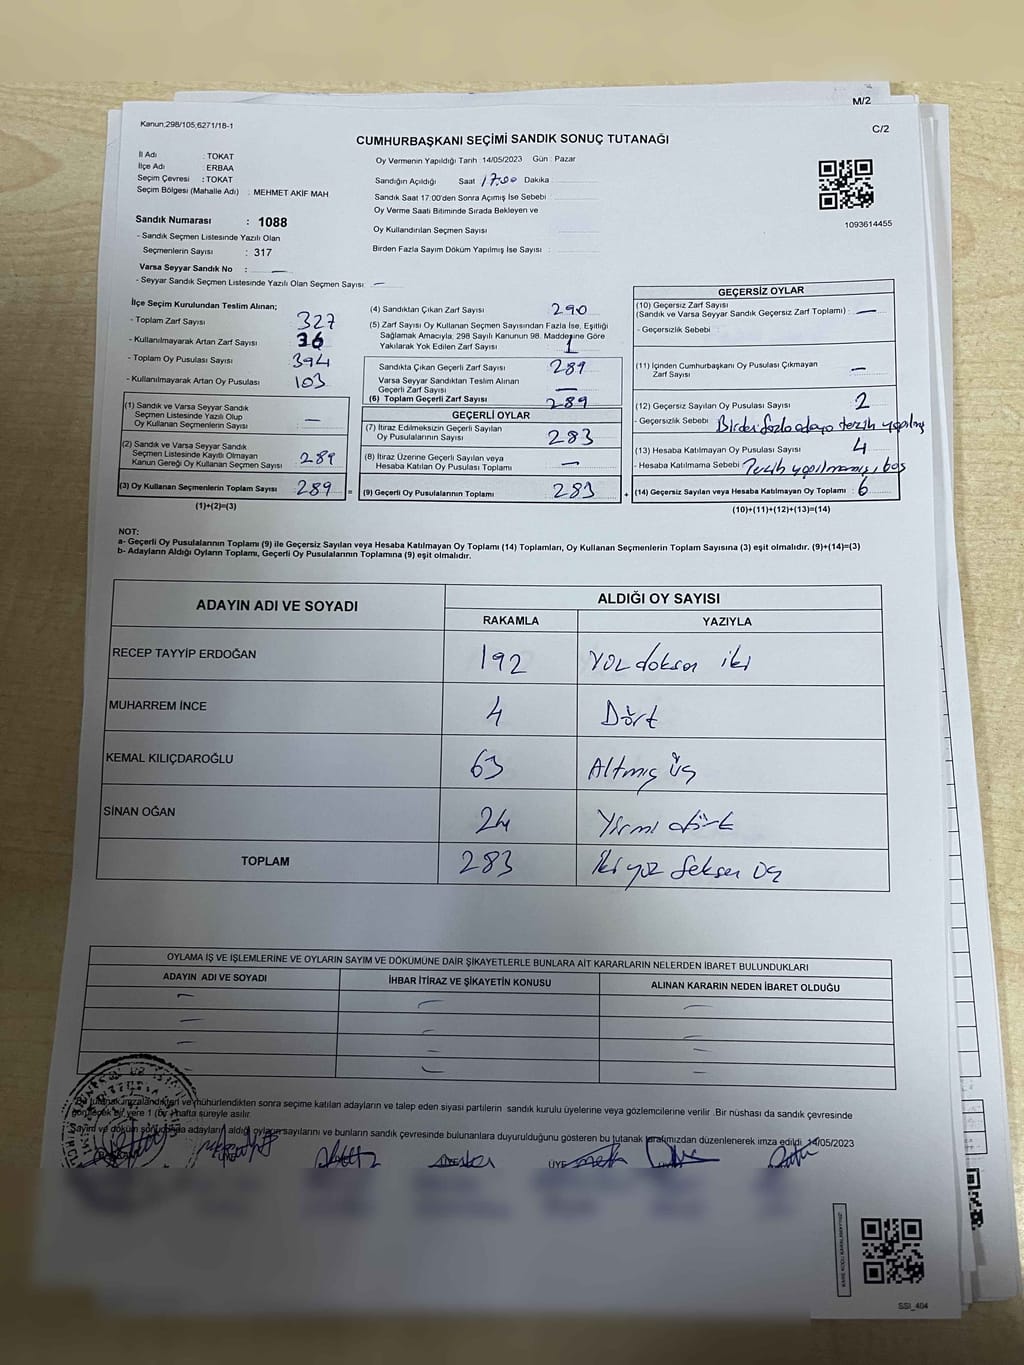 M/2
Kanun,298/105,6271/18-1
C/2
CUMHURBAŞKANI SEÇİMİ SANDIK SONUÇ TUTANAĞI
İl Adı : TOKAT
İlçe Adı : ERBAA
Seçim Çevresi : TOKAT
Seçim Bölgesi (Mahalle Adı) : MEHMET AKİF MAH
Oy Vermenin Yapıldığı Tarih 14/05/2023 Gün : Pazar
Sandığın Açıldığı Saat 17:00 Dakika
Sandık Saat 17:00'den Sonra Açımış İse Sebebi
Oy Verme Saati Bitiminde Sırada Bekleyen ve
Oy Kullandırılan Seçmen Sayısı
Birden Fazla Sayım Döküm Yapılmış İse Sayısı :
1093614455
Sandık Numarası : 1088
- Sandık Seçmen Listesinde Yazılı Olan
Seçmenlerin Sayısı : 317
Varsa Seyyar Sandık No : —
- Seyyar Sandık Seçmen Listesinde Yazılı Olan Seçmen Sayısı : —
İlçe Seçim Kurulundan Teslim Alınan;
- Toplam Zarf Sayısı 327
- Kullanılmayarak Artan Zarf Sayısı 36
- Toplam Oy Pusulası Sayısı 394
- Kullanılmayarak Artan Oy Pusulası 103
(1) Sandık ve Varsa Seyyar Sandık
Seçmen Listesinde Yazılı Olup
Oy Kullanan Seçmenlerin Sayısı —
(2) Sandık ve Varsa Seyyar Sandık
Seçmen Listesinde Kayıtlı Olmayan
Kanun Gereği Oy Kullanan Seçmen Sayısı 289
(3) Oy Kullanan Seçmenlerin Toplam Sayısı 289 =
(1)+(2)=(3)
(4) Sandıktan Çıkan Zarf Sayısı 290
(5) Zarf Sayısı Oy Kullanan Seçmen Sayısından Fazla İse, Eşitliği
Sağlamak Amacıyla, 298 Sayılı Kanunun 98. Maddesine Göre
Yakılarak Yok Edilen Zarf Sayısı 1
Sandıkta Çıkan Geçerli Zarf Sayısı 289
Varsa Seyyar Sandıktan Teslim Alınan
Geçerli Zarf Sayısı —
(6) Toplam Geçerli Zarf Sayısı 289
GEÇERLİ OYLAR
(7) İtiraz Edilmeksizin Geçerli Sayılan
Oy Pusulalarının Sayısı 283
(8) İtiraz Üzerine Geçerli Sayılan veya
Hesaba Katılan Oy Pusulası Toplamı —
(9) Geçerli Oy Pusulalarının Toplamı 283 +
GEÇERSİZ OYLAR
(10) Geçersiz Zarf Sayısı
(Sandık ve Varsa Seyyar Sandık Geçersiz Zarf Toplamı) : —
- Geçersizlik Sebebi
(11) İçinden Cumhurbaşkanı Oy Pusulası Çıkmayan
Zarf Sayısı —
(12) Geçersiz Sayılan Oy Pusulası Sayısı 2
- Geçersizlik Sebebi : Birden fazla adaya tercih yapılmış
(13) Hesaba Katılmayan Oy Pusulası Sayısı 4
- Hesaba Katılmama Sebebi Tercih yapılmamış, boş
(14) Geçersiz Sayılan veya Hesaba Katılmayan Oy Toplamı : 6
(10)+(11)+(12)+(13)=(14)
NOT:
a- Geçerli Oy Pusulasının Toplamı (9) ile Geçersiz Sayılan veya Hesaba Katılmayan Oy Toplamı (14) Toplamları, Oy Kullanan Seçmenlerin Toplam Sayısına (3) eşit olmalıdır. (9)+(14)=(3)
b- Adayların Aldığı Oyların Toplamı, Geçerli Oy Pusulalarının Toplamına (9) eşit olmalıdır.
ADAYIN ADI VE SOYADI
ALDIĞI OY SAYISI
RAKAMLA YAZIYLA
RECEP TAYYİP ERDOĞAN 192 Yüz doksan iki
MUHARREM İNCE 4 Dört
KEMAL KILIÇDAROĞLU 63 Altmış üç
SİNAN OĞAN 24 Yirmi dört
TOPLAM 283 İki yüz seksen üç
OYLAMA İŞ VE İŞLEMLERİNE VE OYLARIN SAYIM VE DÖKÜMÜNE DAİR ŞİKAYETLERLE BUNLARA AİT KARARLARIN NELERDEN İBARET BULUNDUKLARI
ADAYIN ADI VE SOYADI İHBAR İTİRAZ VE ŞİKAYETİN KONUSU ALINAN KARARIN NEDEN İBARET OLDUĞU
tutanak imzalandıktan ve mühürlendikten sonra seçime katılan adayların ve talep eden siyasi partilerin sandık kurulu üyelerine veya gözlemcilerine verilir .Bir nüshası da sandık çevresinde
görülecek bir yere 1 (bir) hafta süreyle asılır
sayım ve döküm sonucunda adayların aldığı oyların sayılarını ve bunların sandık çevresinde bulunanlara duyurulduğunu gösteren bu tutanak tarafımızdan düzenlenerek imza edildi. 14/05/2023
ÜYE
SSI_464